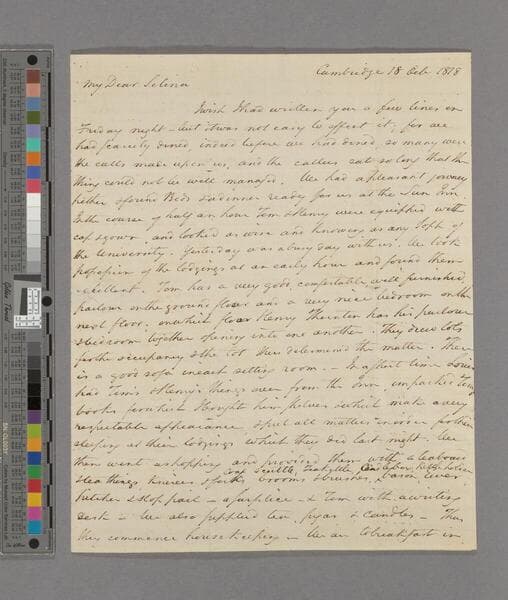 Cambridge 18 Oct. 1818
My Dear Selina
I wish I had written you a few lines on
Friday night - but it was not easy to effect it, for we
had scarcely dined, indeed before we had dined, so many were
the calls made upon us, and the callers sat so long that the
thing could not be well managed. We had a pleasant journey
hither & found Beds & a dinner ready for us at the Sun Inn.
In the course of half an hour Tom & Henry were equipped with
cap & gown, and looked as wise and knowing as any Soph. of
the University. Yesterday was a busy day with us. We took
possession of the lodgings at an early hour and found them
excellent. Tom has a very good, comfortable, well furnished
parlour on the ground floor and a very nice bedroom on the
next floor, on which floor Henry Thornton has his parlour
& bedroom together opening into one another. They drew lots
for the occupancy & the lot thus determined the matter. There
is a good sofa in each sitting room. - In a short time
had Tom & Henry's things over from the Inn, unpacked
books for which I bought him shelves & which make a very
respectable appearance, & put all matters in order for their
sleeping at their lodgings which they did last night. We
then went a shopping and provided them with a teaboard
& tea things, knives & forks, brooms & brushes, bason, ewer,
Scuttle,
pitcher & slop pail - a surplice - & Tom with a writing
desk - We also supplied tea, sugar & candles - Thus
they commence housekeeping - We are to breakfast in